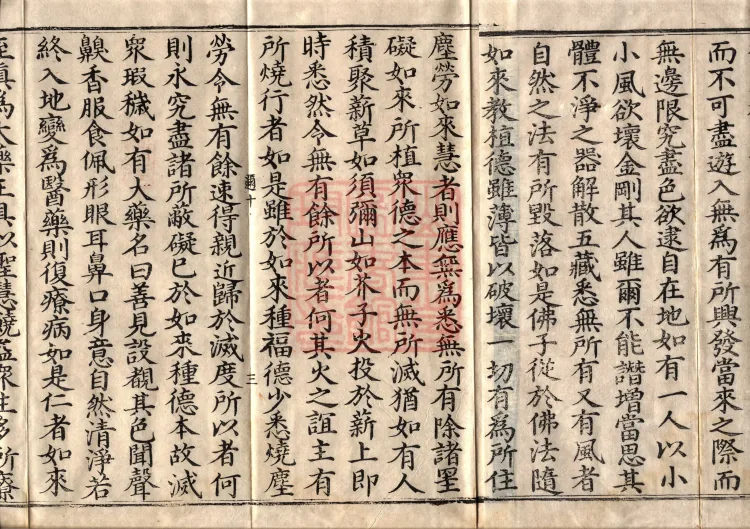 而不可盡遊入無為有所興發當來之際而
無邊限究盡色欲逮自在地如有一人以小
小風欲壞金剛其人雖爾不能譖增當思其
體不淨之器解散五藏悉無所有又有風者
自然之法有所毀落如是佛子從於佛法隨
如來教植德雖薄皆以破壞一切有為所住
塵勞如來慧者則應無為悉無所有除諸罣
礙如來所植眾德之本而無所滅猶如有人
積聚薪草如須彌山如芥子火投於薪上即
時悉然令無有餘所以者何其火之誼主有
所燒行者如是雖於如來種福德少悉燒塵
勞令無有餘速得親近歸於滅度所以者何
則永究盡諸所蔽礙已於如來種德本故滅
眾瑕穢如有大藥名曰善見設覩其色聞聲
齅香服食佩形眼耳鼻口身意自然清淨若
終入地變為醫藥則復療病如是仁者如來
至真為大藥王具以聖慧
三